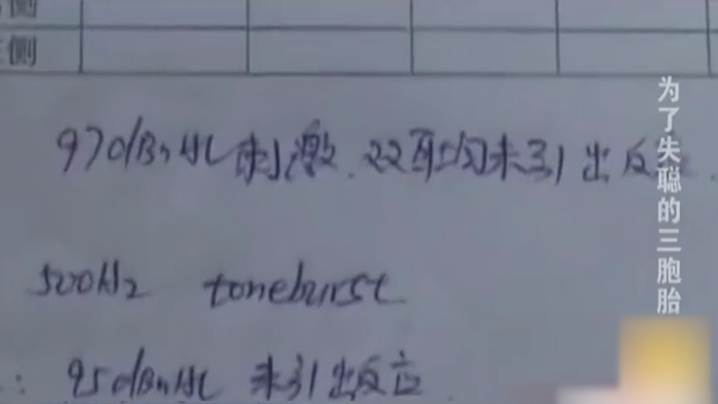 侧
侧
97dBnHL刺激.双耳均未引出反应.
500Hz toneburst
: 95dBnHL 未引出反应.
为了失聪的三胞胎